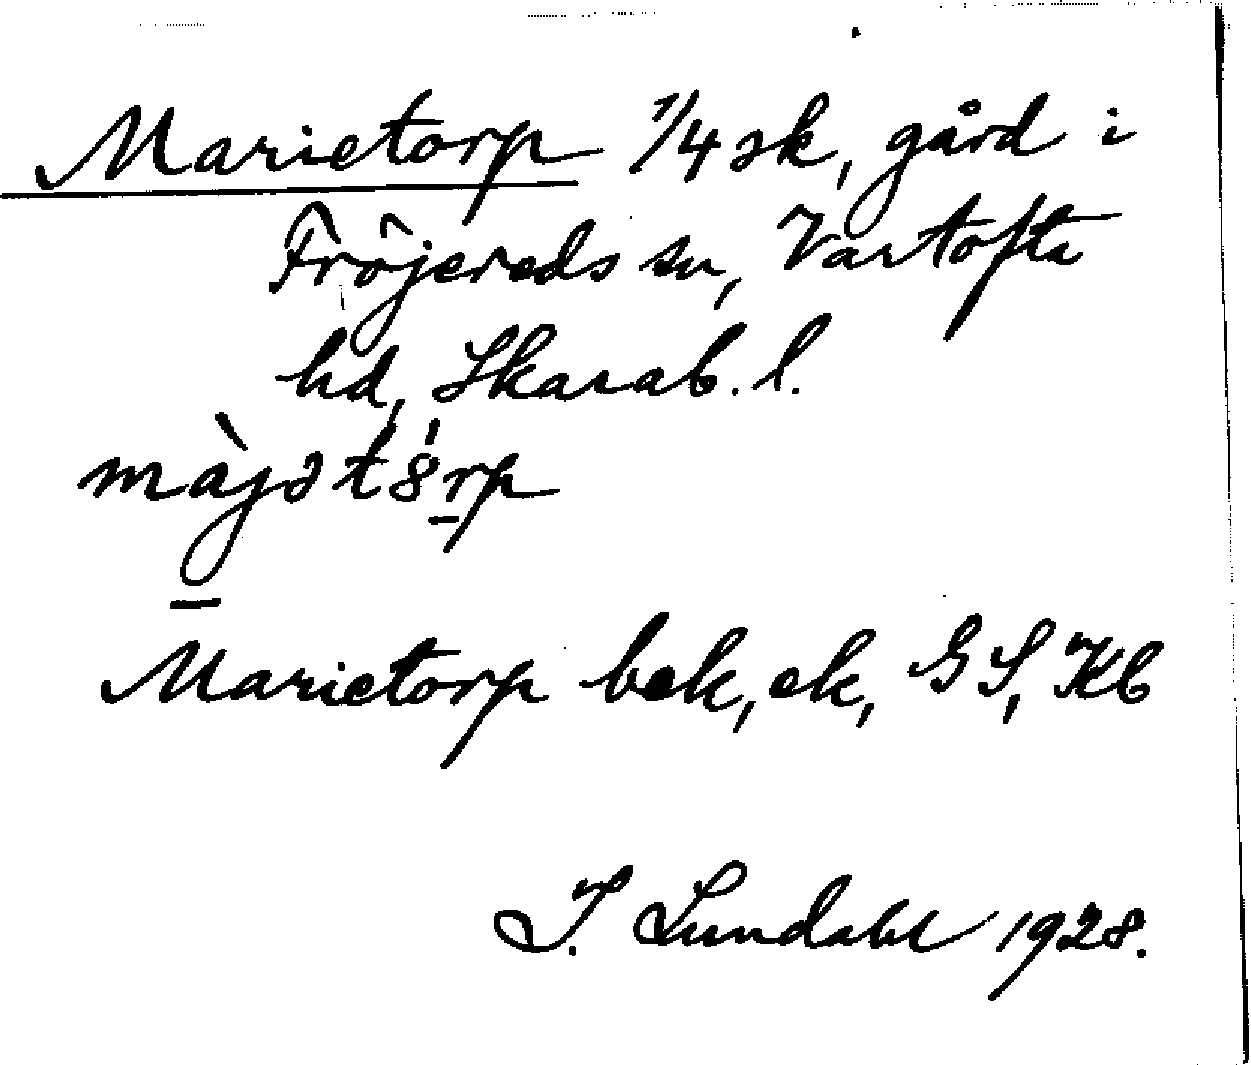 Marietorp 1/4 sk, gård i
Fröjereds sn, Vartofta
hd, Skarab. l.
màjət8rp
Marietorp bek, ek, GS, Kb
I. Lundahl 1928.